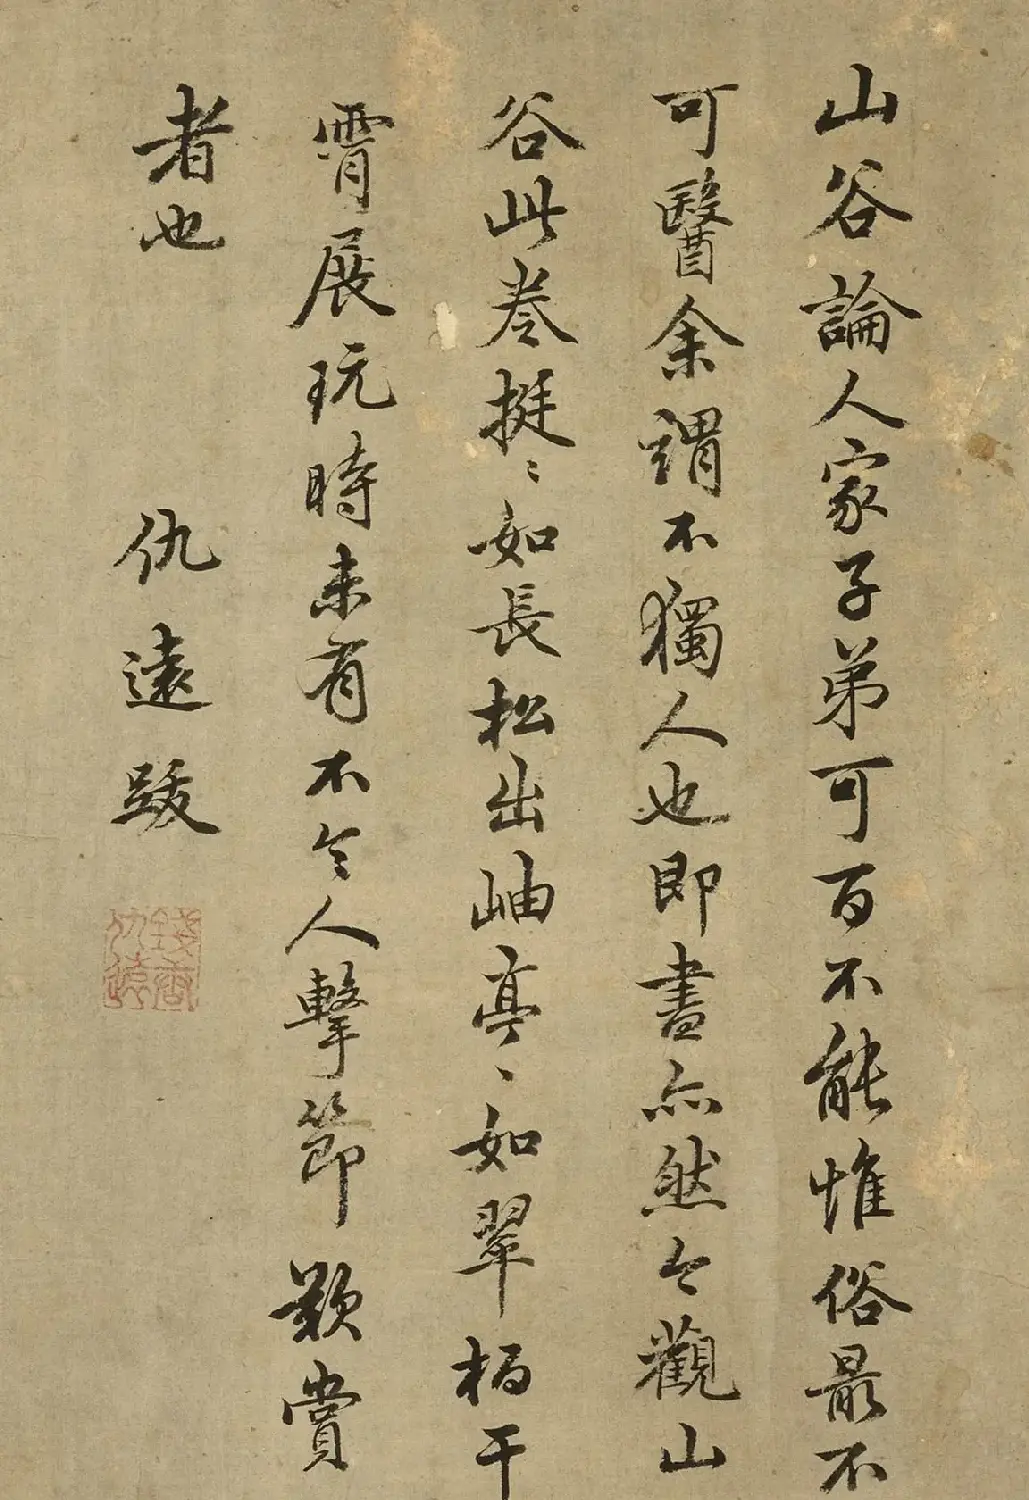 山谷論人家子弟可百不能惟俗最不
可醫余謂不獨人也即書亦然今觀山
谷此卷挺〻如長松出岫亭〻如翠栢干
霄展玩時未有不令人擊節歎賞
者也
仇遠跋
錢唐仇遠